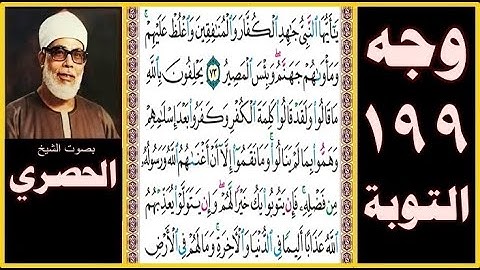 وجه
١٩٩
التوبة
يَٰٓأَيُّهَا ٱلنَّبِيُّ جَٰهِدِ ٱلۡكُفَّارَ وَٱلۡمُنَٰفِقِينَ وَٱغۡلُظۡ عَلَيۡهِمۡۚ
وَمَأۡوَىٰهُمۡ جَهَنَّمُۖ وَبِئۡسَ ٱلۡمَصِيرُ ٧٣ يَحۡلِفُونَ بِٱللَّهِ
مَا قَالُواْ وَلَقَدۡ قَالُواْ كَلِمَةَ ٱلۡكُفۡرِ وَكَفَرُواْ بَعۡدَ إِسۡلَٰمِهِمۡ
وَهَمُّواْ بِمَا لَمۡ يَنَالُواْۚ وَمَا نَقَمُوٓاْ إِلَّآ أَنۡ أَغۡنَىٰهُمُ ٱللَّهُ وَرَسُولُهُۥ
مِن فَضۡلِهِۦۚ فَإِن يَتُوبُواْ يَكُ خَيۡرٗا لَّهُمۡۖ وَإِن يَتَوَلَّوۡاْ يُعَذِّبۡهُمُ
ٱللَّهُ عَذَابًا أَلِيمٗا فِي ٱلدُّنۡيَا وَٱلۡأٓخِرَةِۚ وَمَا لَهُمۡ فِي ٱلۡأَرۡضِ
بصوت الشيخ
الحصري